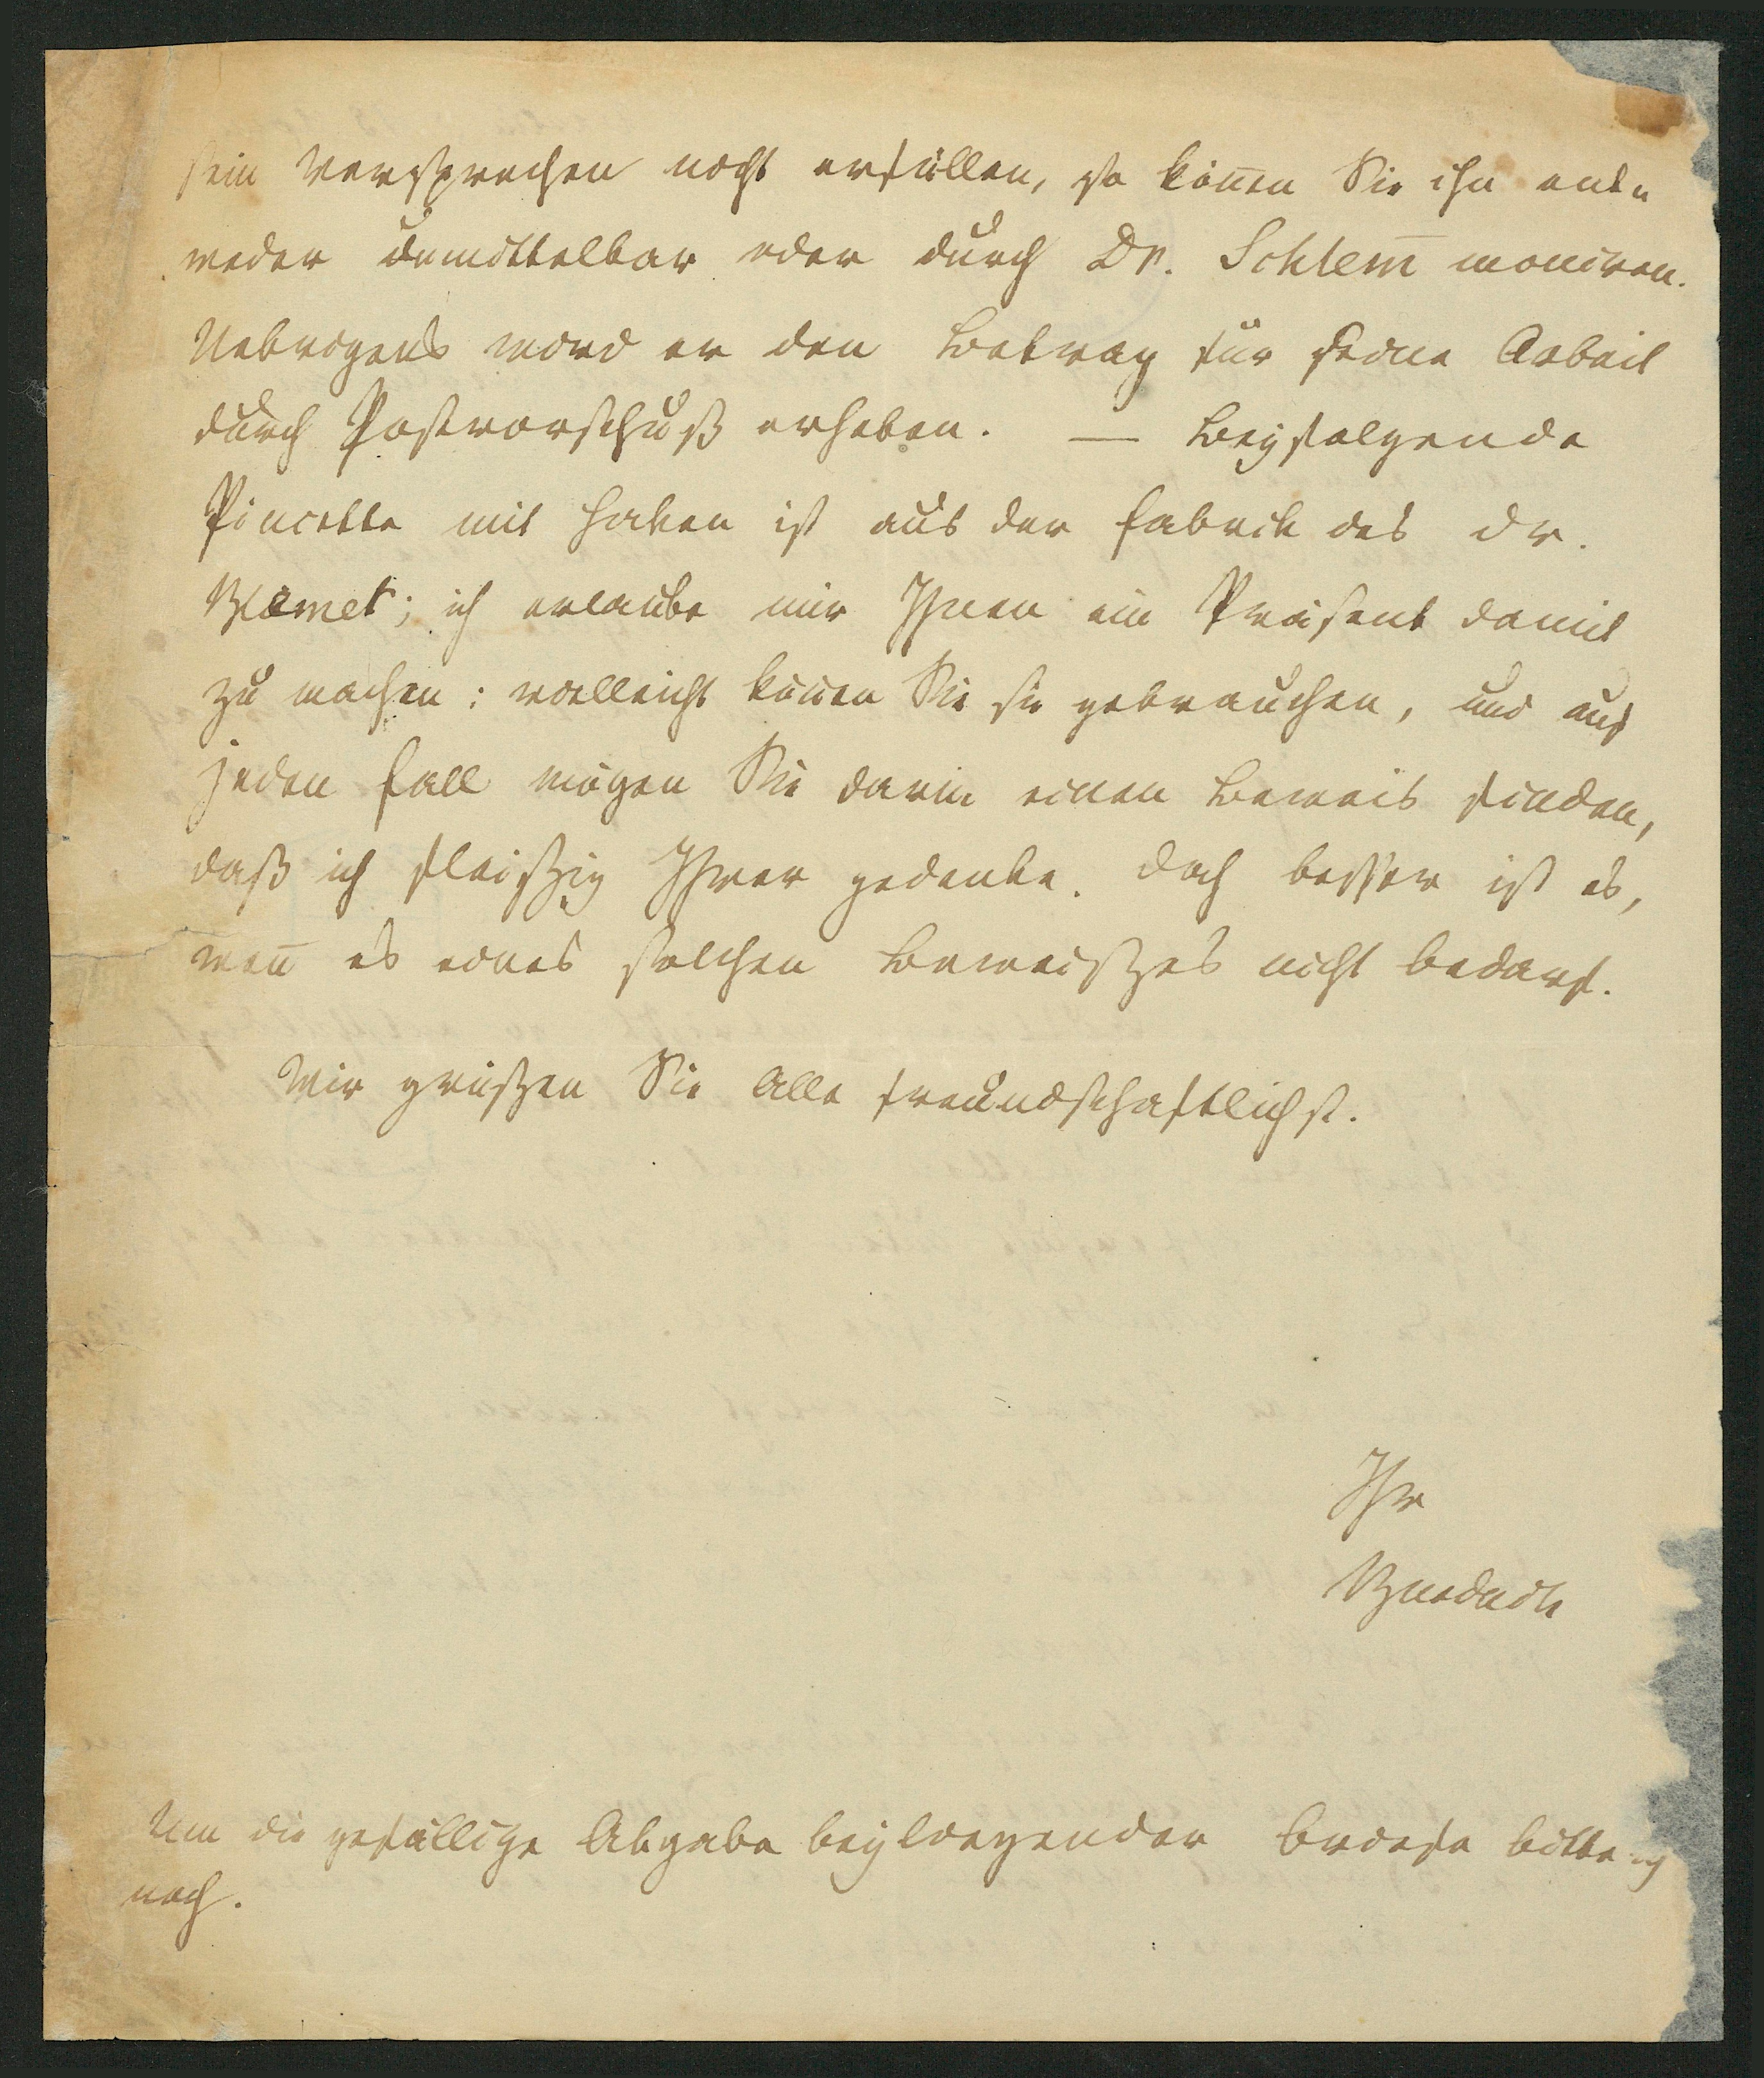 sein Versprechen nicht erfüllen, so können Sie ihn ent-
weder unmittelbar oder durch Dr. Schlem̅ moniren.
Uebrigens wird er den Betrag für seine Arbeit
durch Postvorschuß erheben. — Beyfolgende
Pincette mit Haken ist aus der Fabrik des Dr.
ich erlaube mir Ihnen ein Präsent damit
zu machen: vielleicht können Sie sie gebrauchen, und auf
jeden Fall mögen Sie darin einen Beweis finden,
daß ich fleißig Ihrer gedenke. Doch besser ist es,
wen̅ es eines solchen Beweißes nicht bedarf.
Wir grüßen Sie Alle freundschaftlichst.
Ihr
Burdach
Um die gefällige Abgabe beyliegender Briefe bitte ich
noch.